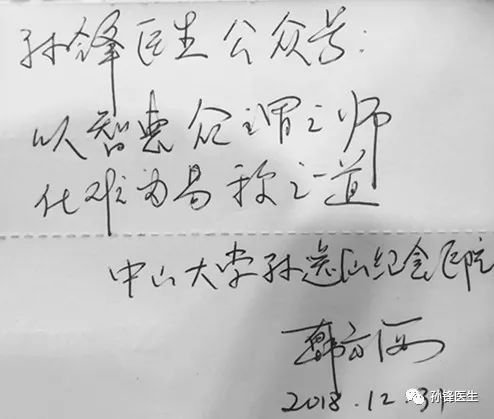 孙锋医生公众号:
以智惠众谓之师
化难为易称之道
中山大学孙逸仙纪念医院
韩
2018.12.31
孙锋医生